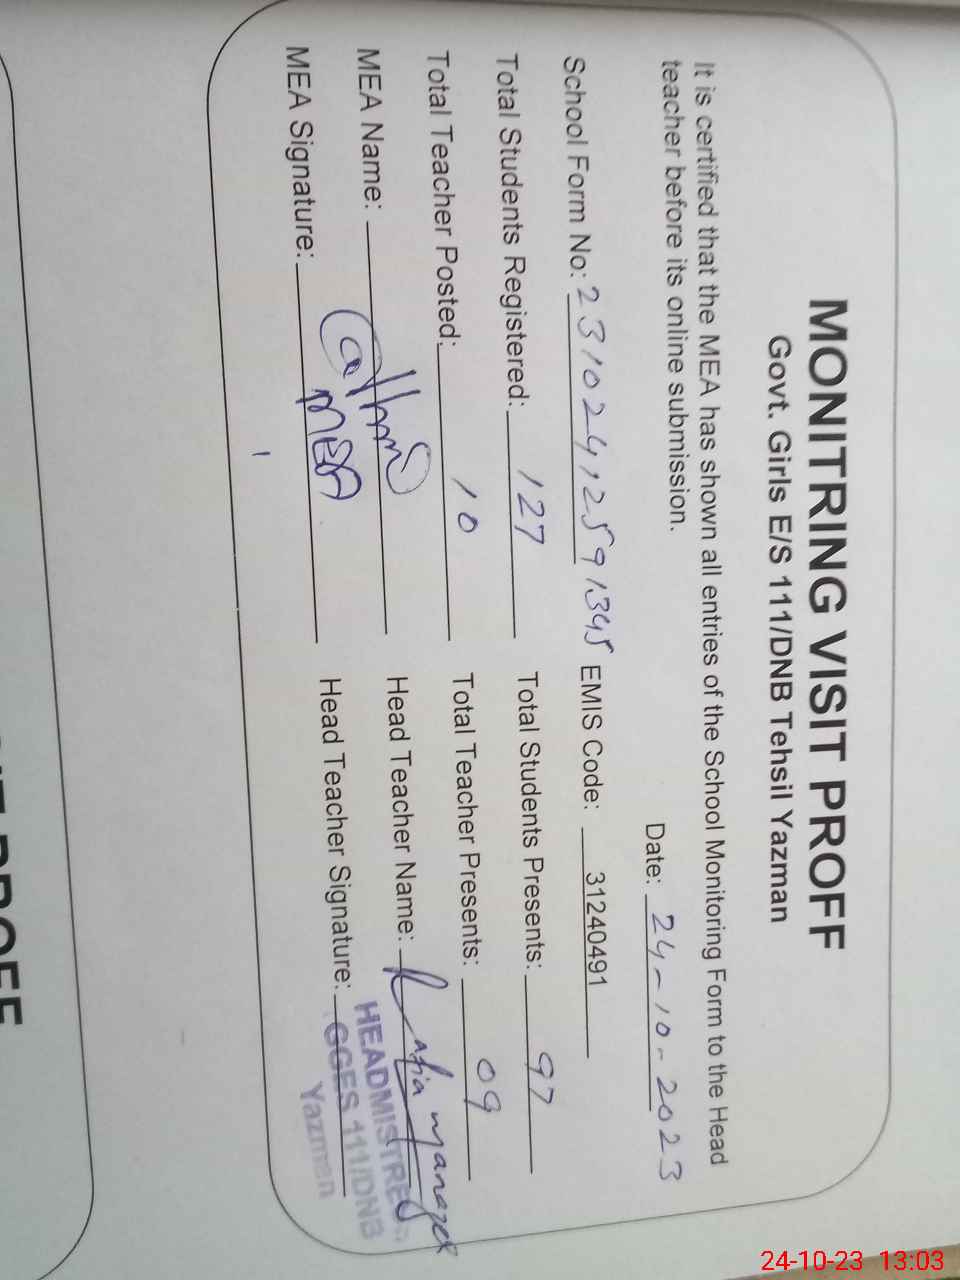 MONITRING VISIT PROFF
Govt. Girls E/S 111/DNB Tehsil Yazman
It is certified that the MEA has shown all entries of the School Monitoring Form to the Head
teacher before its online submission.
Date: 24-10-2023
School Form No: 23102412591345 EMIS Code: 31240491
Total Students Registered: 127 Total Students Presents: 97
Total Teacher Posted: 10 Total Teacher Presents: 09
MEA Name: Head Teacher Name:
MEA Signature: MEA Head Teacher Signature:
HEADMISTRESS
GGES 111/DNB
Yazman
24-10-23 13:03